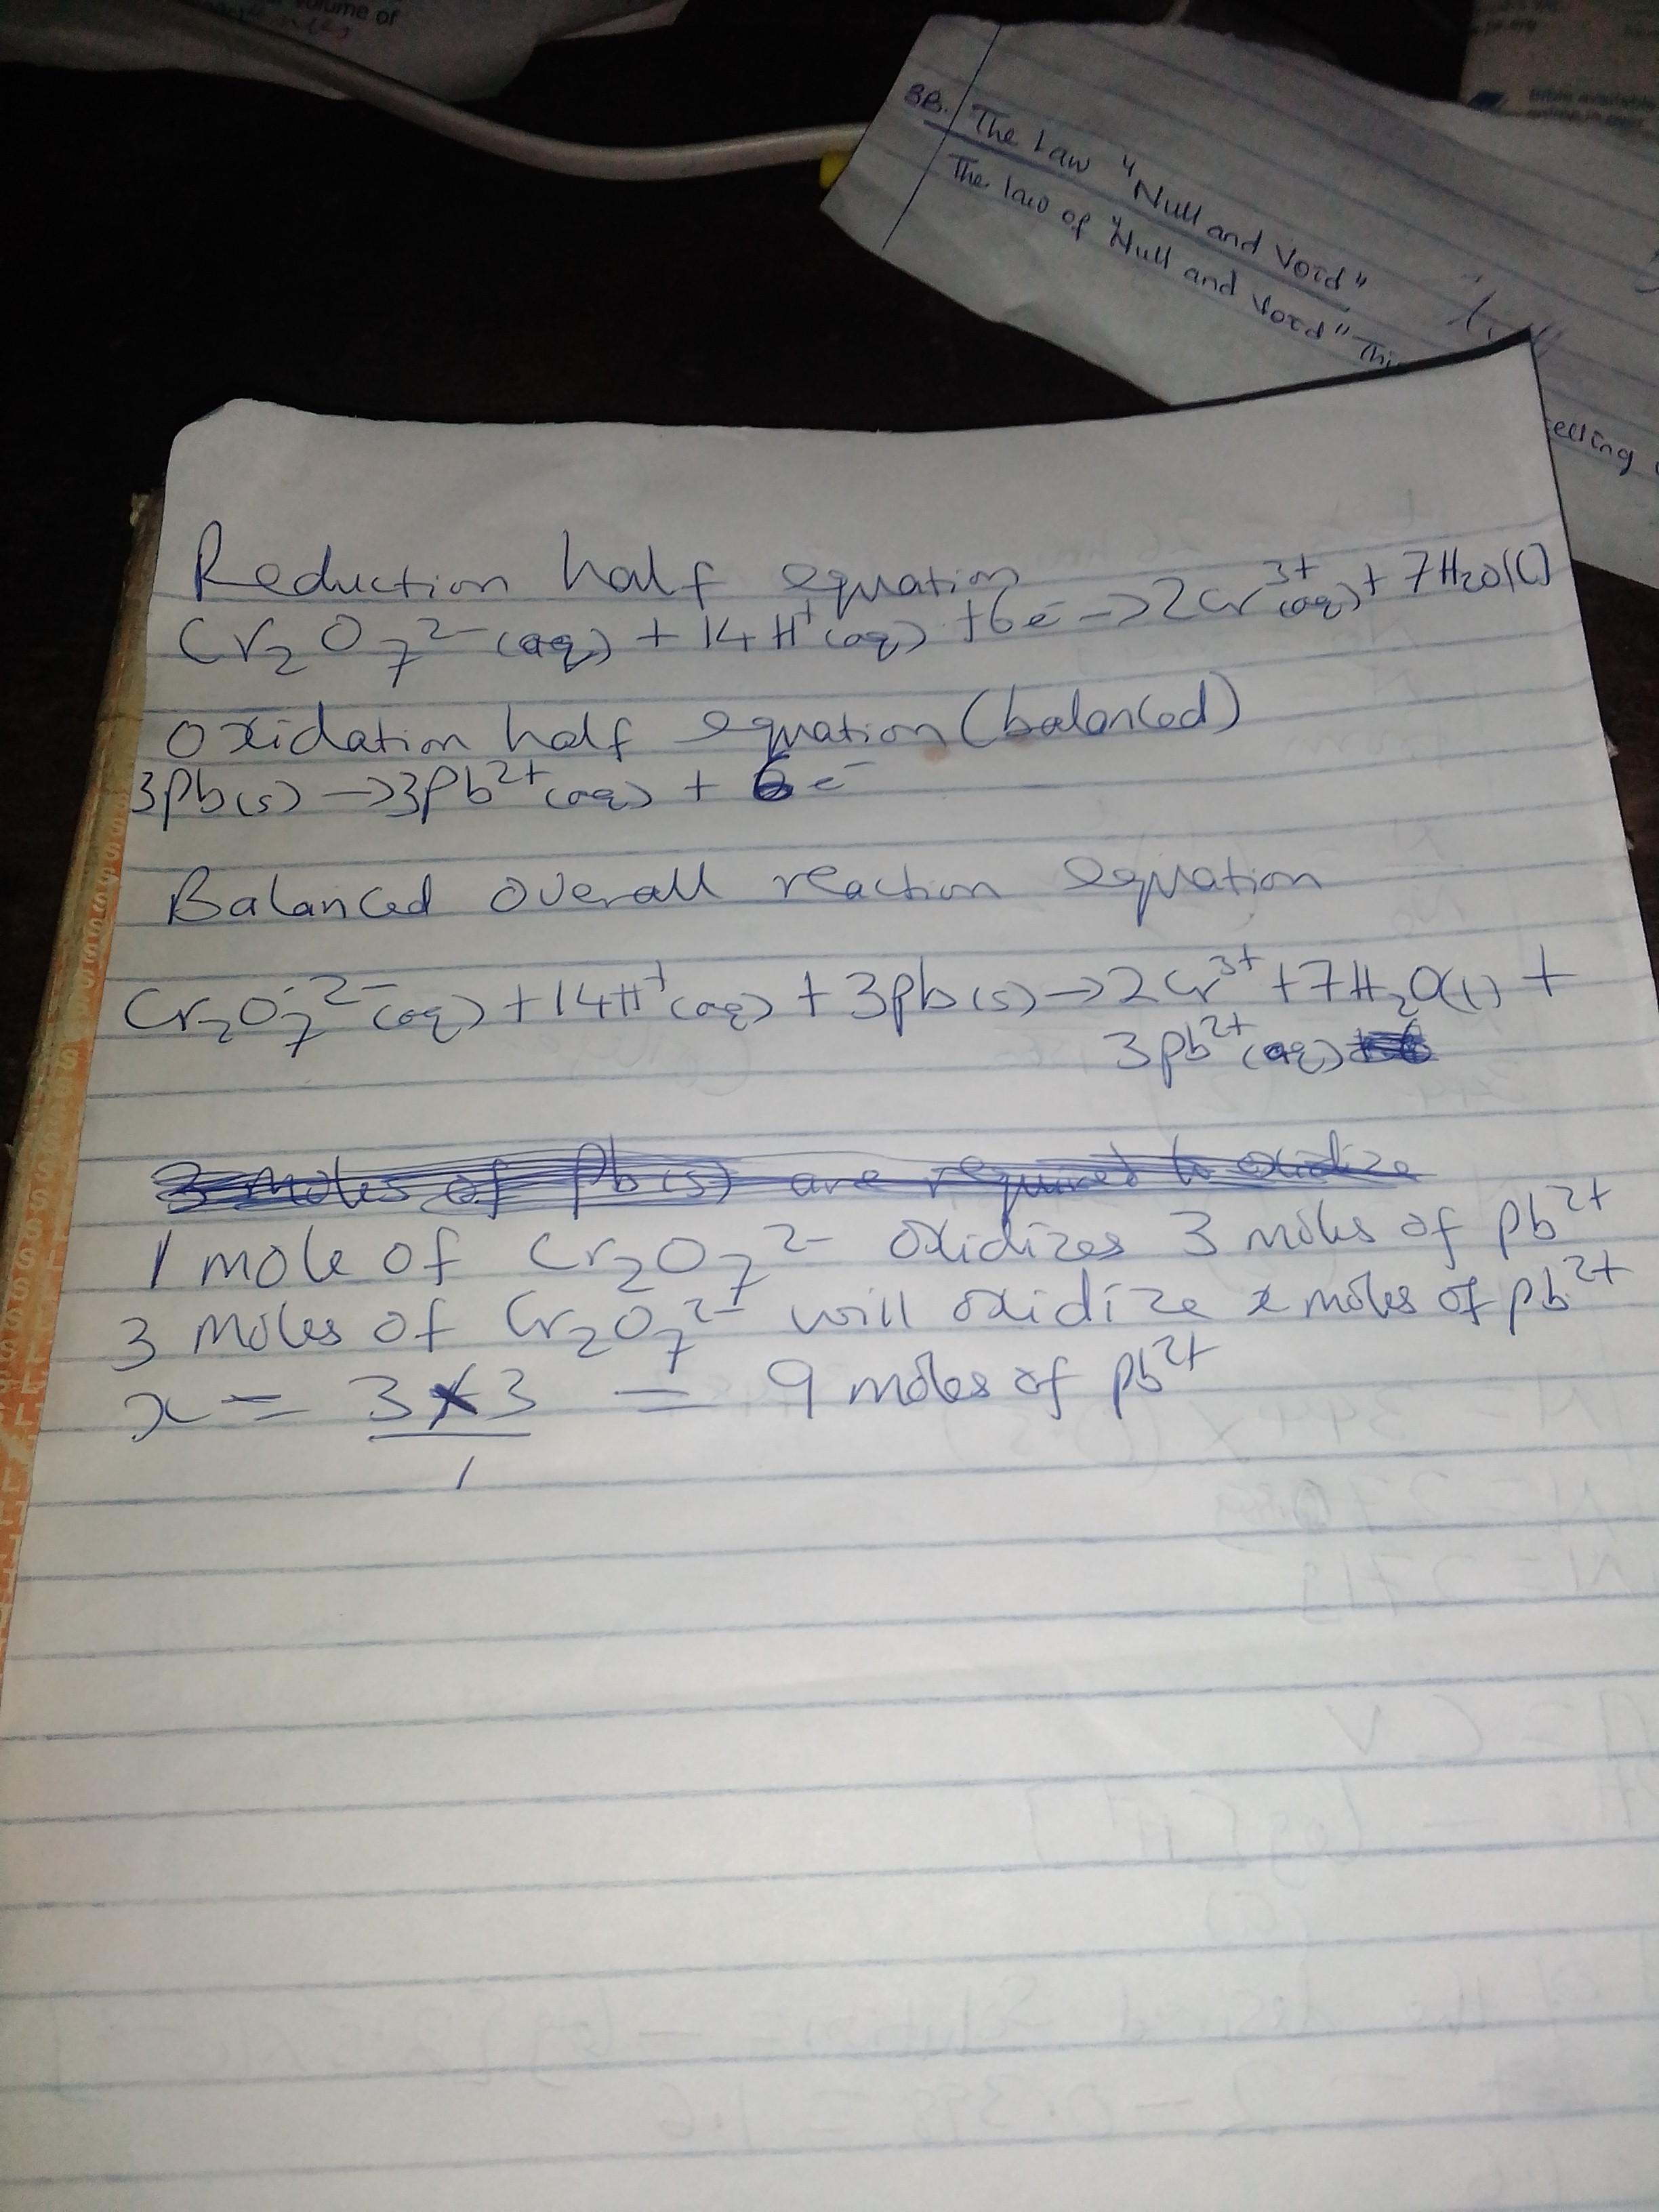 volume of
3B. The Law "Null and Void"
The law of "Null and Void" This
elling
Reduction half equation
Cr₂O₇²⁻(aq) + 14H⁺(aq) + 6e⁻ → 2Cr³⁺(aq) + 7H₂O(l)
Oxidation half equation (balanced)
3Pb(s) → 3Pb²⁺(aq) + 6e⁻
Balanced overall reaction equation
Cr₂O₇²⁻(aq) + 14H⁺(aq) + 3Pb(s) → 2Cr³⁺ + 7H₂O(l) +
3Pb²⁺(aq)
3 moles of Pb(s) are required to oxidize
1 mole of Cr₂O₇²⁻ oxidizes 3 moles of Pb²⁺
3 moles of Cr₂O₇²⁻ will oxidize x moles of Pb²⁺
x = 3 × 3 = 9 moles of Pb²⁺
1